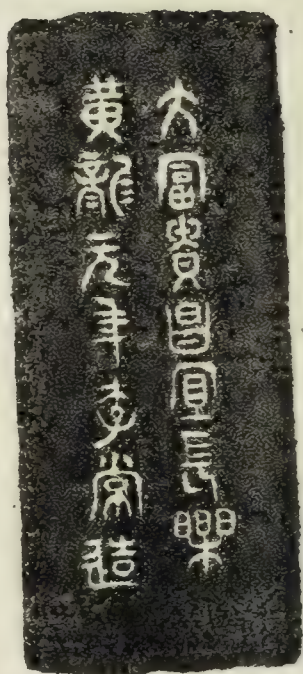 大富貴昌宜長樂
黃龍元年李常造